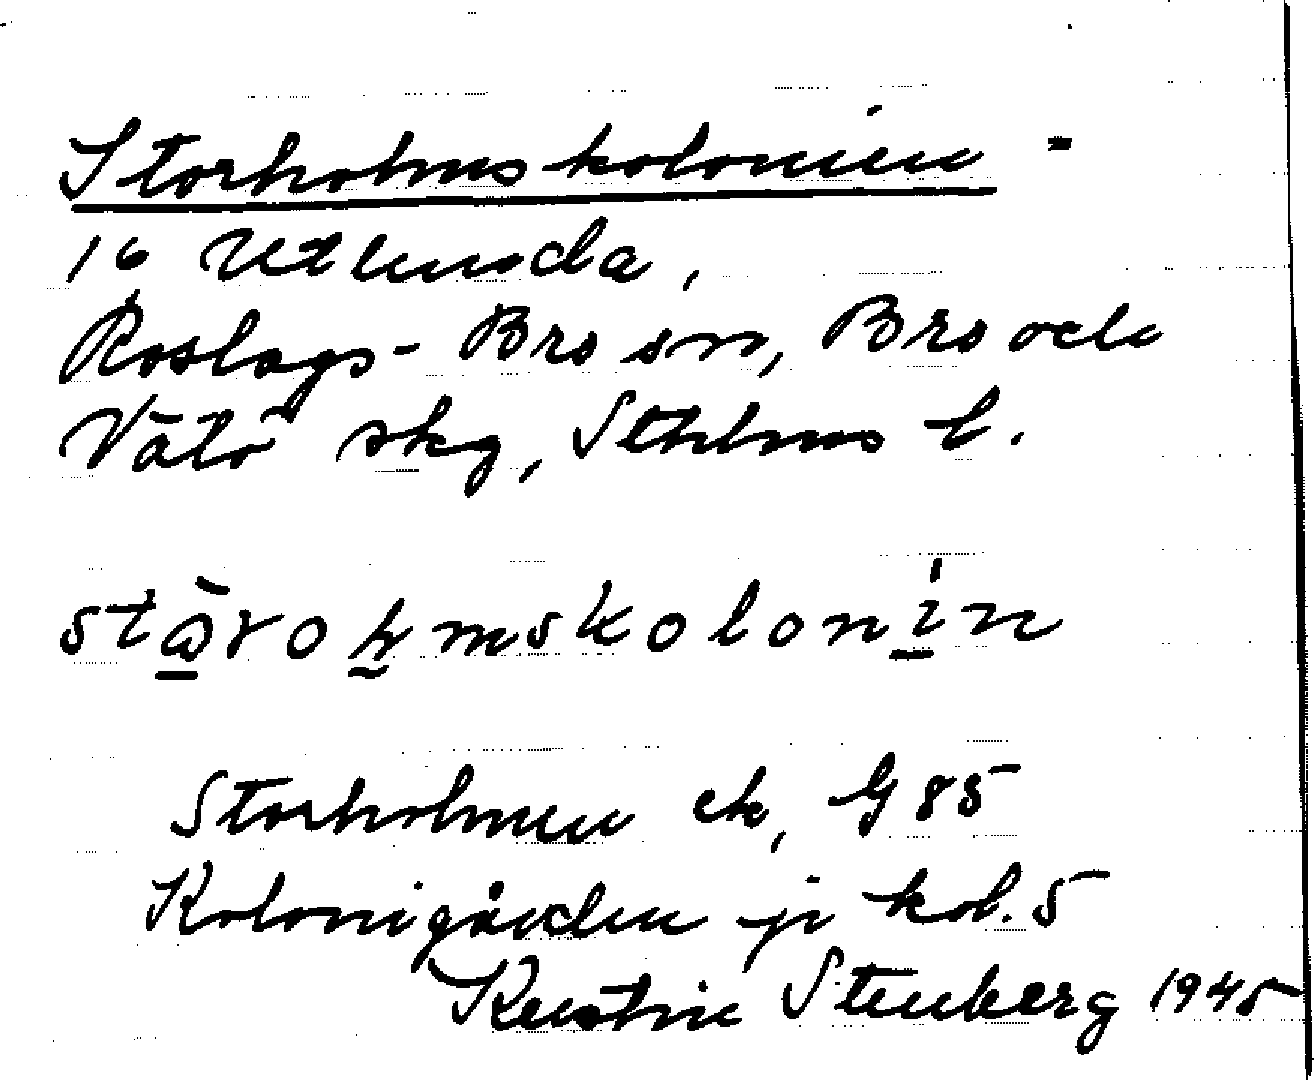 Storholmskolonien =
16 Utlunda,
Roslags-Bro sn, Bro och
Vätö skg, Sthlms l.
stårohmskolonin
Storholmen ek, G 85
Kolonigården jr kol. 5
Kerstin Stenberg 1945